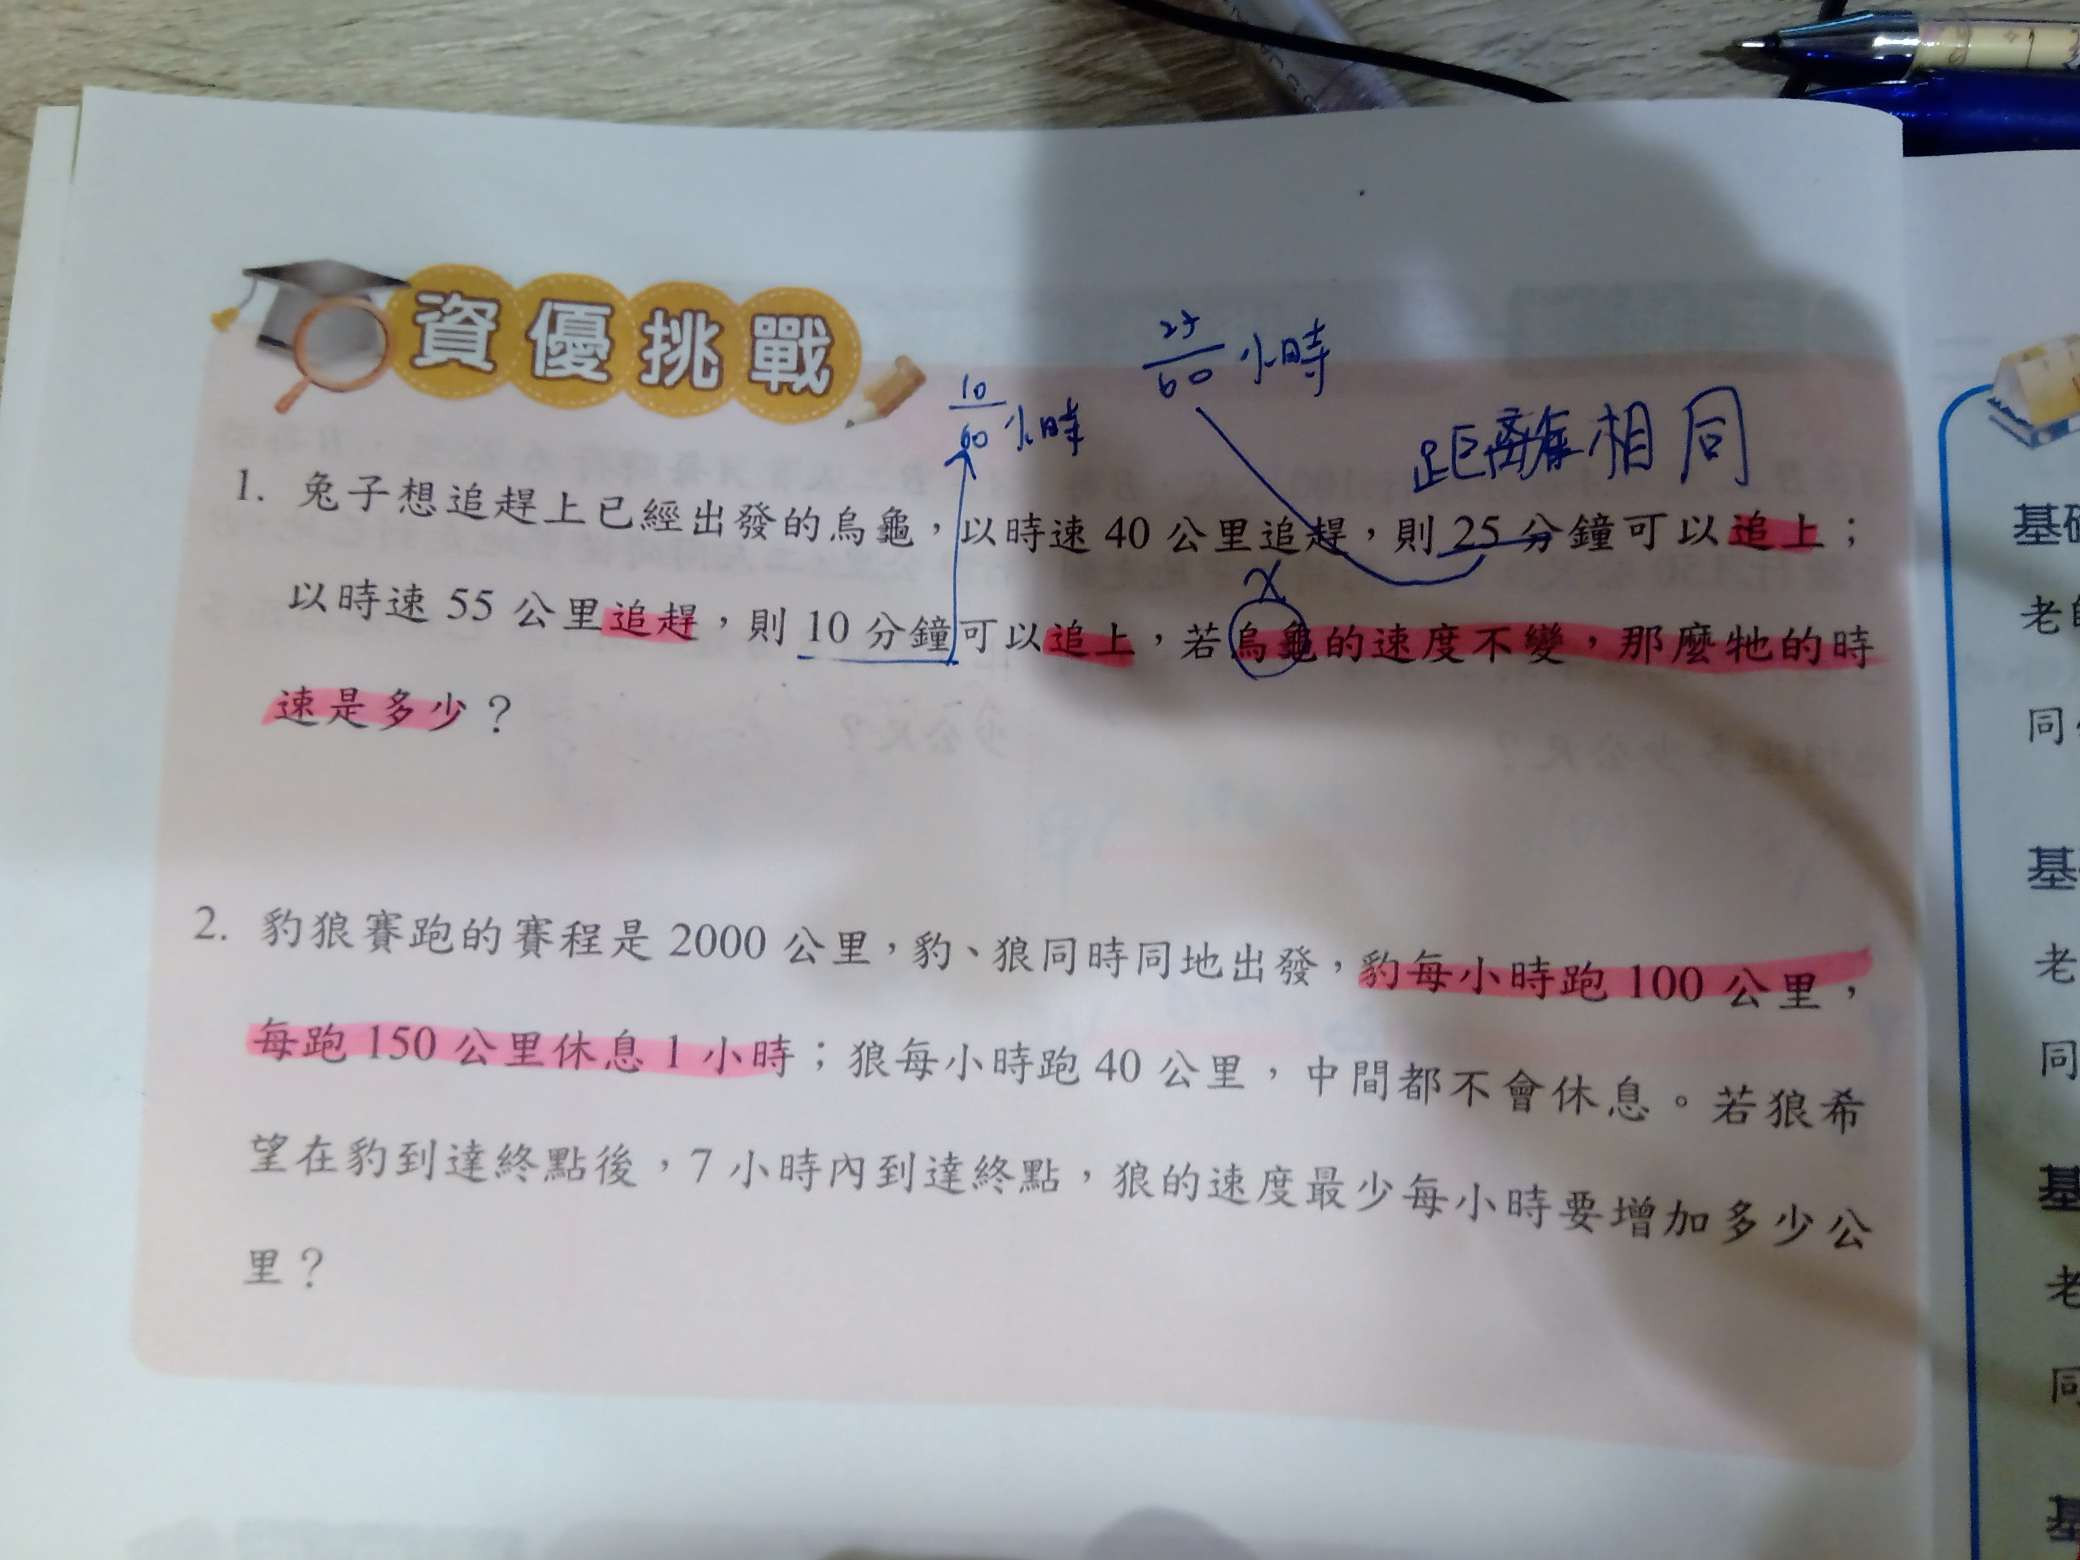 資優挑戰
10/60 小時
25/60 小時
距離相同
1. 兔子想追趕上已經出發的烏龜，以時速 40 公里追趕，則 25 分鐘可以追上；
x
以時速 55 公里追趕，則 10 分鐘可以追上，若烏龜的速度不變，那麼牠的時
速是多少？
2. 豹狼賽跑的賽程是 2000 公里，豹、狼同時同地出發，豹每小時跑 100 公里，
每跑 150 公里休息 1 小時；狼每小時跑 40 公里，中間都不會休息。若狼希
望在豹到達終點後，7 小時內到達終點，狼的速度最少每小時要增加多少公
里？
老
同
老
同
老
同